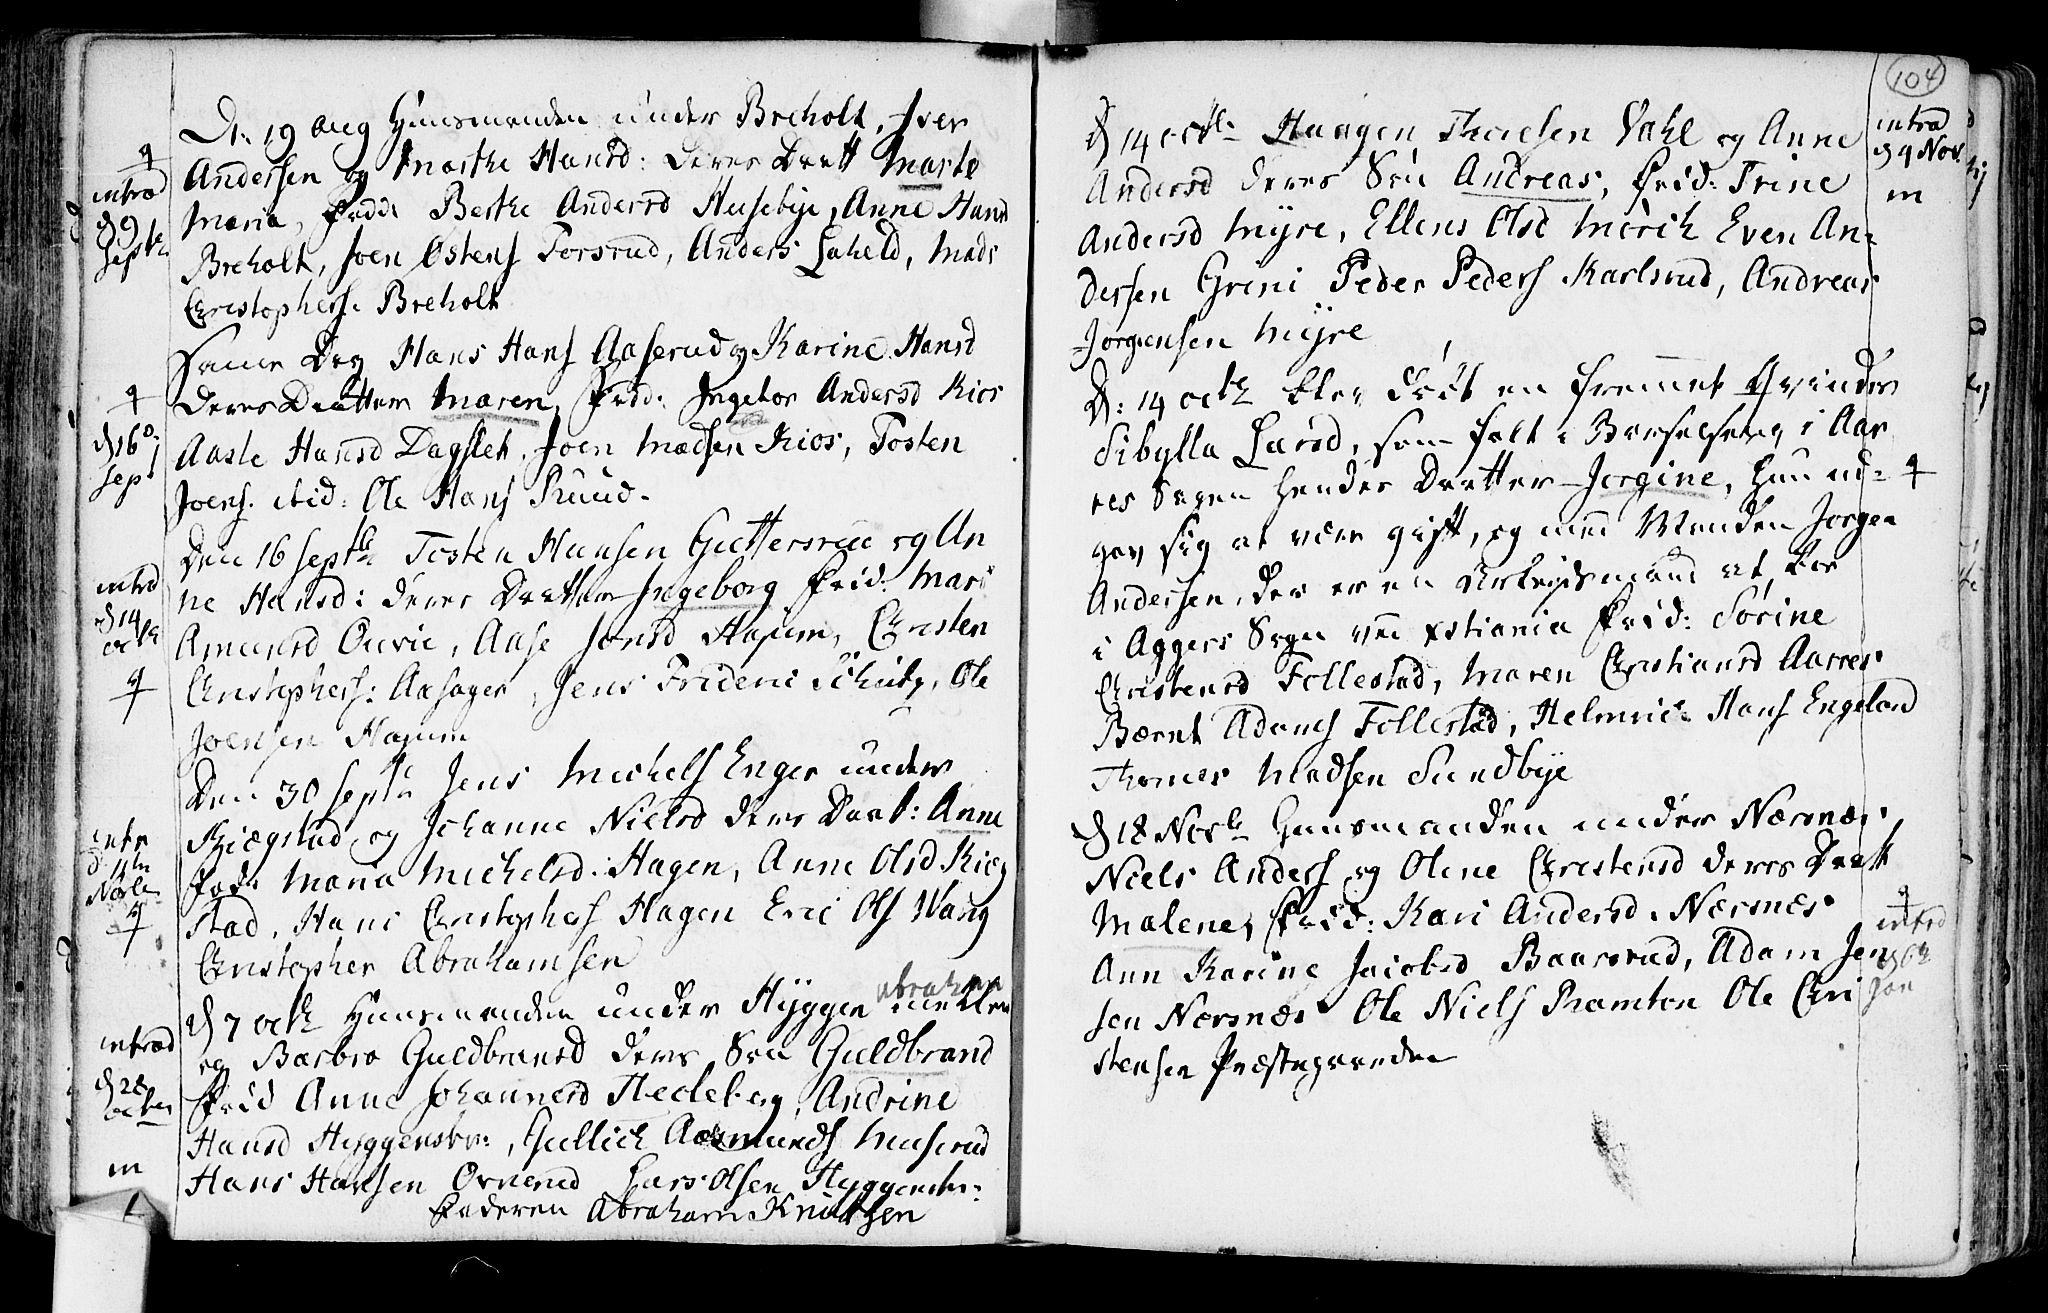 D: 19 Aug Huusmanden under Breholt, Iver
Andersen og Marthe Hansd: deres Datt Marte
Maria, Fadd: Berthe Andersd Husebye, Anne Hansd
Breholt, Joen Østens Torsrud, Anders Laheld, Mads
Christophers. Breholt
Samme Dag Hans Hans Aaserud og Karine Hansd
deres Datter Maren, Fad: Ingebor Andersd Kios
Aaste Hansd Dagslet, Joen Madsen Kios, Tosten
Joens. ibid: Ole Hans Ruud.
Den 16 Septb Tosten Hansen Guttersrue og An
ne Hansd: deres Datter Ingeborg Fad: Mari
Amunsd Aase Jonsd Hajum, Christen
Christophers: Aasager, Jens Frideric Schütz, Ole
Joensen Hajum
Den 30 Septb Jens Michels Enger under
Kiægstad og Johanne Nielsd deres Datt: Anne
Fad: Maria Michelsd. Hagen, Anne Olsd Kieg
stad, Hans Christophers Hagen Eric Ols Wang
Christopher Abrahamsen
d 7 Octb Huusmanden under Hyggen Abraham
og Barbro Guldbransd deres Søn Guldbrand
Fad Anne Johannesd Hedeberg, Andrine
Hansd Hyggensbr:, Gullich Aasmunds Muserud
Hans Hansen Ovnerud Lars Olsen Hyggensbr:
Faderen Abraham Knudsen
introd
d 9
Septb
d 16
Sept
introd
d 14
octb
intr
d 4
Novb
introd
d 28
octbr
m
104
d 14 octb: Haagen Thoresen Dahl og Anne
Andersd deres Søn Andreas, Fad: Trine
Andersd Myre, Ellens Olsd Mørch Even An-
dersen Grini Peder Peders Karlsrud, Andreas
Jørgensen Myre
D: 14 octb blev døbt en fremmet Qvindes
Sibylla Larsd, som falt i Barselseng i Aar
res Sogn hendes Datter Jørgine, hun ud-
gav sig at være gift, og med Manden Jørgen
Andersen, der er en Arbeydsmand at boe
i Aggers Sogn ved Xstiania Fad: Sørine
Christensd Follestad, Maren Christiansd Aarres
Bærnt Adams Follestad, Helmric Hans Engeland
Thomas Madsen Sundbye
d 18 Novb Huusmanden under Nærsnæs
Niels Anders og Olene Christensd deres Datt
Malene, Fad: Kari Andersd. Nærsnæs
Ann Karine Jacobsd Baarsrud, Adam Jen
sen Nærsnæs Ole Niels Ramton Ole Chri
stensen Præstegaarden
introd
d 4 Nov.
m
introd
d 6
Jan